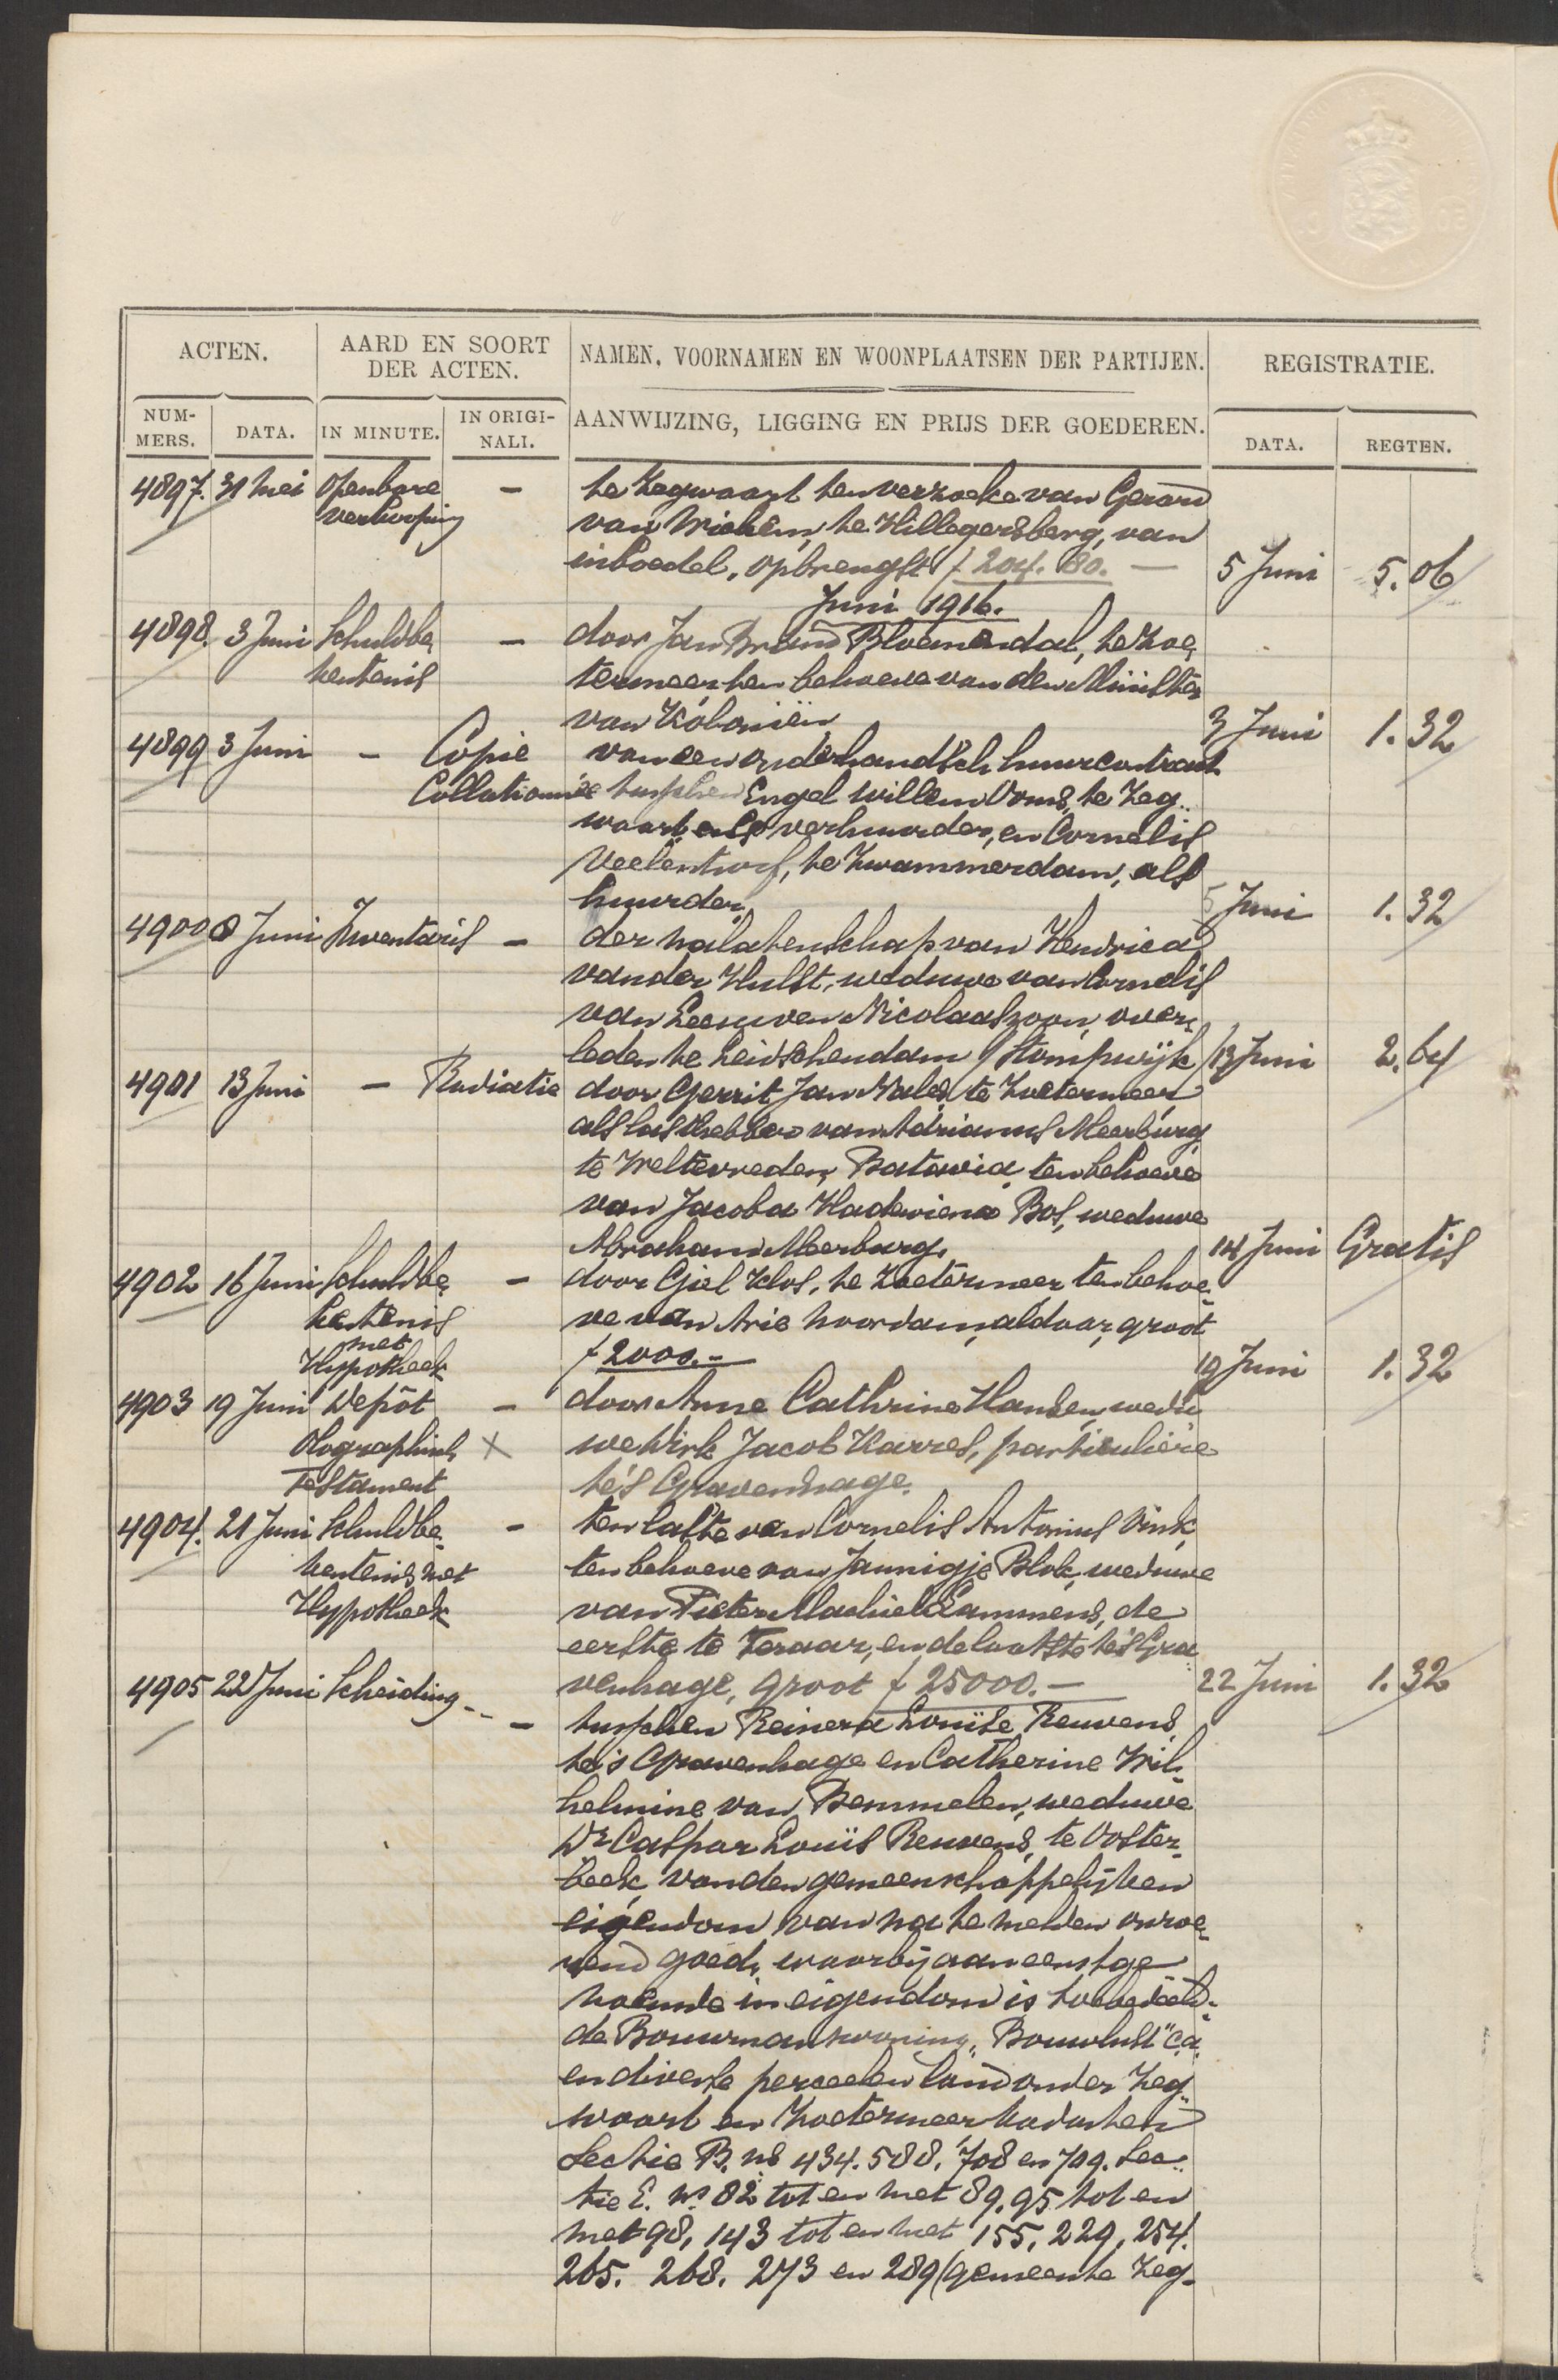 ACTEN.
AARD EN SOORT
DER ACTEN.
NAMEN, VOORNAMEN EN WOONPLAATSEN DER PARTIJEN.
REGISTRATIE.
NUM-
MERS.
DATA.
IN MINUTE.
IN ORIGI-
NALI.
AANWIJZING, LIGGING EN PRIJS DER GOEDEREN.
DATA.
REGTEN.
4897. 31 Mei Openbare - te Zegwaart ten verzoeke van Gerard
verkooping van Wichem, te Hillegersberg, van
inboedel, opbrengst f 204.80. — 5 Juni 5.06
Juni 1916.
4898. 3 Juni Schuldbe - door Jan Brand Bloemendal, te Zoe
kentenis termeer, ten behoeve van den Minister
van Koloniën 3 Juni 1.32
4899 3 Juni - Copie van een onderhandsch huurcontract
Collationnée tusschen Engel Willem Ooms, te Zeg
waart als verhuurder, en Cornelis
Veelenturf, te Zwammerdam, als
huurder. 5 Juni 1.32
4900 8 Juni Inventaris - der nalatenschap van Hendrica
van der Hulst, weduwe van Cornelis
van Leeuwen Nicolaaszoon, over
leden te Leidschendam / Stompwijk 13 Juni 2.64
4901 13 Juni - Radiatie door Gerrit Jan te Zoetermeer
als lasthebber van Adrianus Meerburg
te Weltevreden, Batavia, ten behoeve
van Jacoba Hadewiena Bos, weduwe
Abraham Meerburg. 14 Juni Gratis
4902 16 Juni Schuldbe - door Giel Klos, te Zoetermeer, ten behoe
kentenis ve van Arie Noordam, aldaar, groot
met
Hypotheek f 2000.- 19 Juni 1.32
4903 19 Juni Depôt - door Anne Cathrine Hansen, wedu
Olographisch X we Dirk Jacob Karres, particuliere
Testament te 's Gravenhage.
4904. 21 Juni Schuldbe - ten laste van Cornelis Antonius Vink,
kentenis met ten behoeve van Jannigje Blok, weduwe
Hypotheek van Pieter Machiel Lammens, de
eerste te Teraar, en de laatste te 's Gra
venhage, groot f 25000.— 22 Juni 1.32
4905 22 Juni Scheiding - tusschen Reinera Louise Reuvens
te 's Gravenhage en Catherine Wil
helmine van Bemmelen, weduwe
Dr Caspar Louis Reuvens, te Ooster
beek, van den gemeenschappelijken
eigendom van na te melden onroe
rend goed, waarbij aan eerstge
noemde in eigendom is toebedeeld.
de Bouwmanswoning, "Bouwlust" c.a.
en diverse perceelen land onder Zeg
waart en Zoetermeer kadaster
Sectie B. ns 434. 588. 708 en 709. Sec
tie E. ns 82 tot en met 89, 95 tot en
met 98, 143 tot en met 155, 229, 254.
265. 268. 273 en 289 (gemeente Zeg